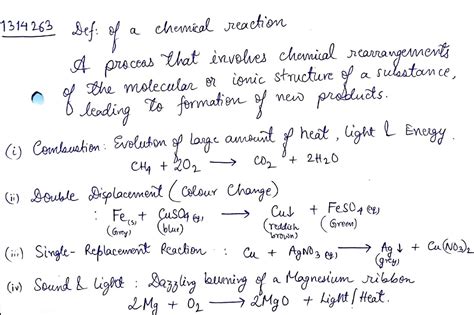 1314263 Def: of a chemical reaction
A process that involves chemical rearrangements
of the molecular or ionic structure of a substance,
leading to formation of new products.
(i) Combustion: Evolution of large amount of heat, light & Energy.
CH4 + 2O2 → CO2 + 2H2O
(ii) Double Displacement (Colour Change)
: Fe(s) + CuSO4 (aq) → Cu↓ + FeSO4 (aq)
(Grey) (blue) (reddish brown) (Green)
(iii) Single-Replacement Reaction: Cu + AgNO3 (aq) → Ag↓ + Cu(NO3)2
(grey)
(iv) Sound & Light: Dazzling burning of a Magnesium ribbon
2Mg + O2 → 2MgO + Light/Heat.